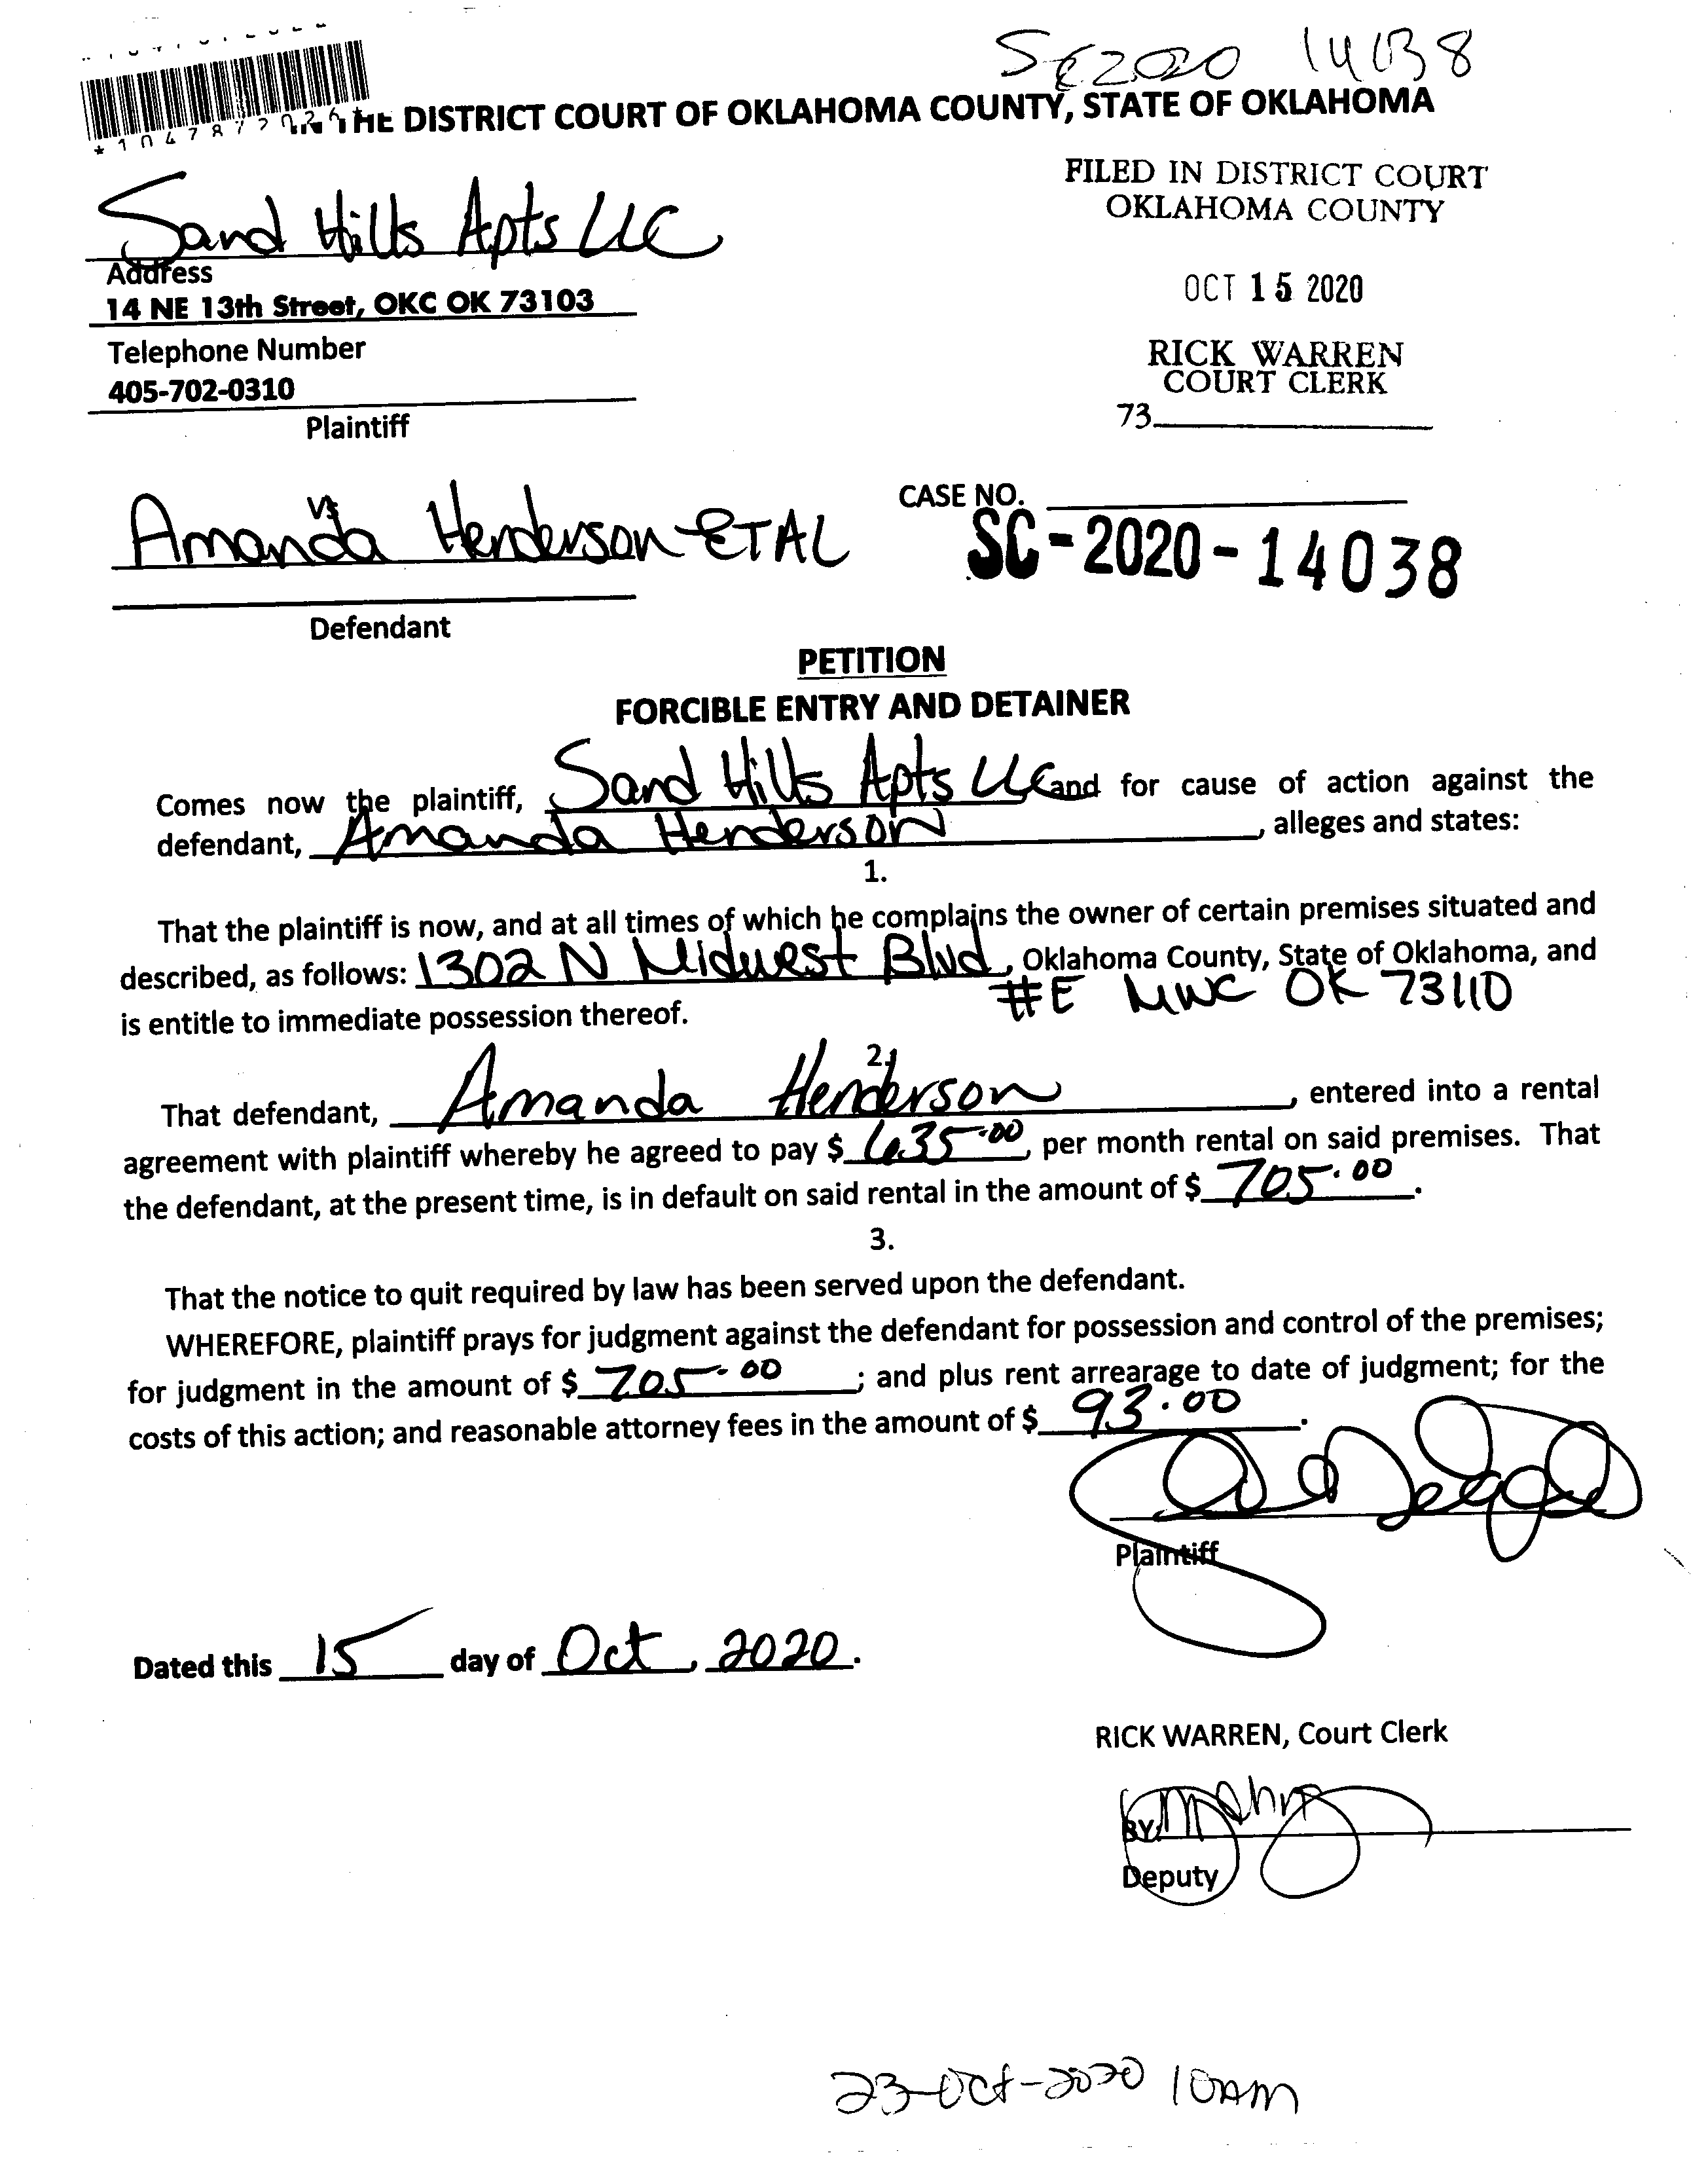 SC2020 14038
IN THE DISTRICT COURT OF OKLAHOMA COUNTY, STATE OF OKLAHOMA
Sand Hills Apts LLC
Address
14 NE 13th Street, OKC OK 73103
Telephone Number
405-702-0310
Plaintiff
FILED IN DISTRICT COURT
OKLAHOMA COUNTY
OCT 15 2020
RICK WARREN
COURT CLERK
73
vs
Amanda Henderson ETAL
Defendant
CASE NO.
SC-2020-14038
PETITION
FORCIBLE ENTRY AND DETAINER
Comes now the plaintiff, Sand Hills Apts LLC and for cause of action against the
defendant, Amanda Henderson, alleges and states:
1.
That the plaintiff is now, and at all times of which he complains the owner of certain premises situated and
described, as follows: 1302 N Midwest Blvd, Oklahoma County, State of Oklahoma, and
#E MWC OK 73110
is entitle to immediate possession thereof.
2.
That defendant, Amanda Henderson, entered into a rental
agreement with plaintiff whereby he agreed to pay $ 635.00 per month rental on said premises. That
the defendant, at the present time, is in default on said rental in the amount of $ 705.00.
3.
That the notice to quit required by law has been served upon the defendant.
WHEREFORE, plaintiff prays for judgment against the defendant for possession and control of the premises;
for judgment in the amount of $ 705.00; and plus rent arrearage to date of judgment; for the
costs of this action; and reasonable attorney fees in the amount of $ 93.00.
Plaintiff
Dated this 15 day of Oct, 2020.
RICK WARREN, Court Clerk
BY
Deputy
23-Oct-2020 10AM